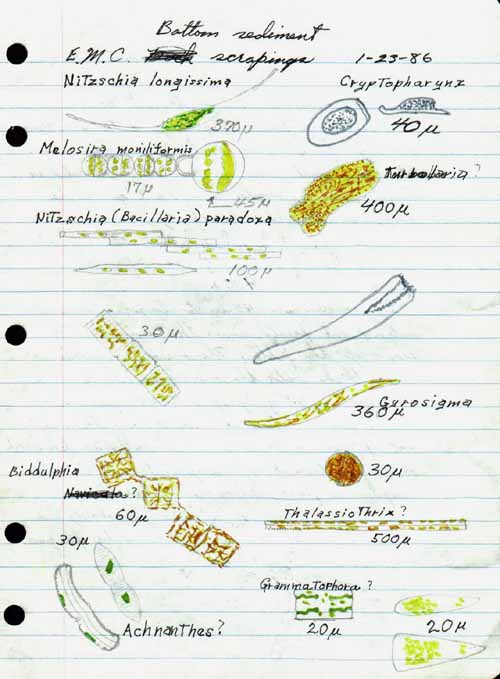 Bottom sediment
E.M.C. scrapings 1-23-86
Nitzschia longissima
370µ
Cryptopharynx
40µ
Melosira moniliformis
17µ
45µ
Turbellaria?
400µ
Nitzschia (Bacillaria) paradoxa
100µ
30µ
Gyrosigma
360µ
Biddulphia
Navicula?
60µ
30µ
Thalassiothrix?
500µ
30µ
Achnanthes?
Grammatophora?
20µ
20µ